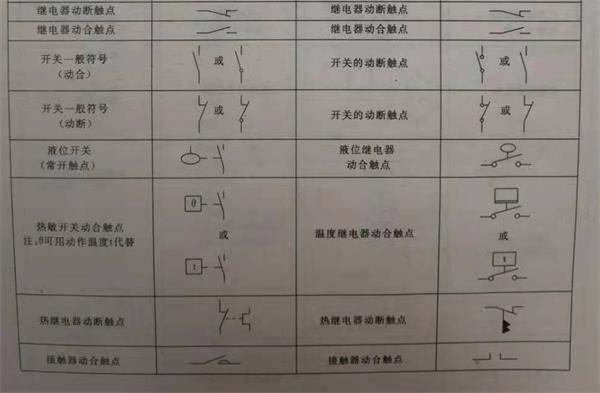 继电器动断触点 继电器动断触点
继电器动合触点 继电器动合触点
开关一般符号
（动合）
或
开关的动断触点
或
开关一般符号
（动断）
或
开关的动断触点
或
液位开关
（常开触点）
液位继电器
动合触点
热敏开关动合触点
注：θ可用动作温度t代替
θ
或
t
温度继电器动合触点
或
t
热继电器动断触点 热继电器动断触点
接触器动合触点 接触器动合触点